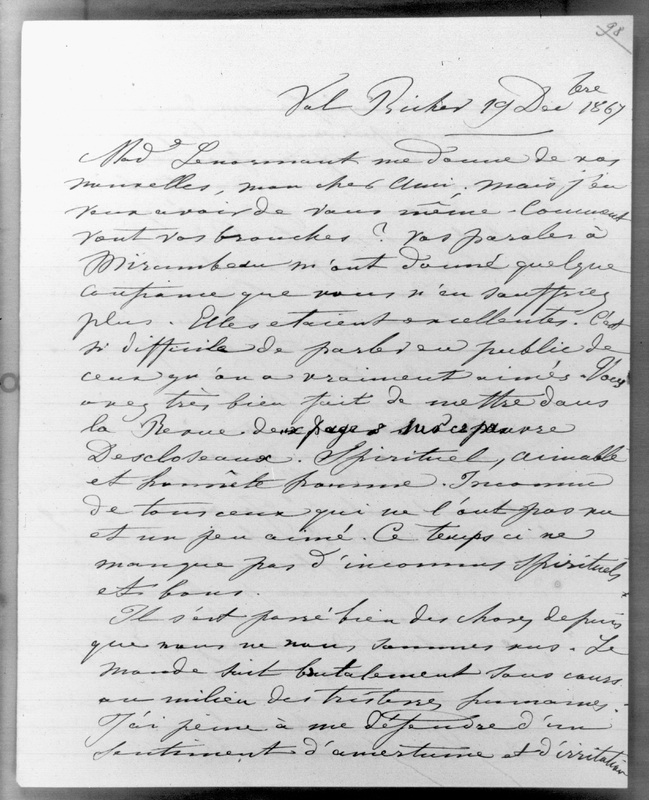 98
Val Richer 19 Decbre 1867
Made Lenormant me donne de vos
nouvelles, mon cher ami. Mais j'en
veux avoir de vous même. Comment
vont vos bronches ? Vos paroles à
Mirambeau m'ont donné quelque
confiance que vous n'en souffriez
plus. Elles etaient excellentes. C'est
si difficile de parler en public de
ceux qu'on a vraiment aimés. Vous
avez très bien fait de mettre dans
la Revue deux pages sur ce pauvre
Descloseaux. Spirituel, aimable
et honnête homme. Inconnu
de tous ceux qui ne l'ont pas vu
et un peu aimé. Ce temps ci ne
manque pas d'inconnus spirituels
et bons.
Il s'est passé bien des choses depuis
que nous ne nous sommes vus. Le
monde suit brutalement son cours
au milieu des tristesses humaines.
J'ai peine à me défendre d'un
sentiment d'amertume et d'irritation